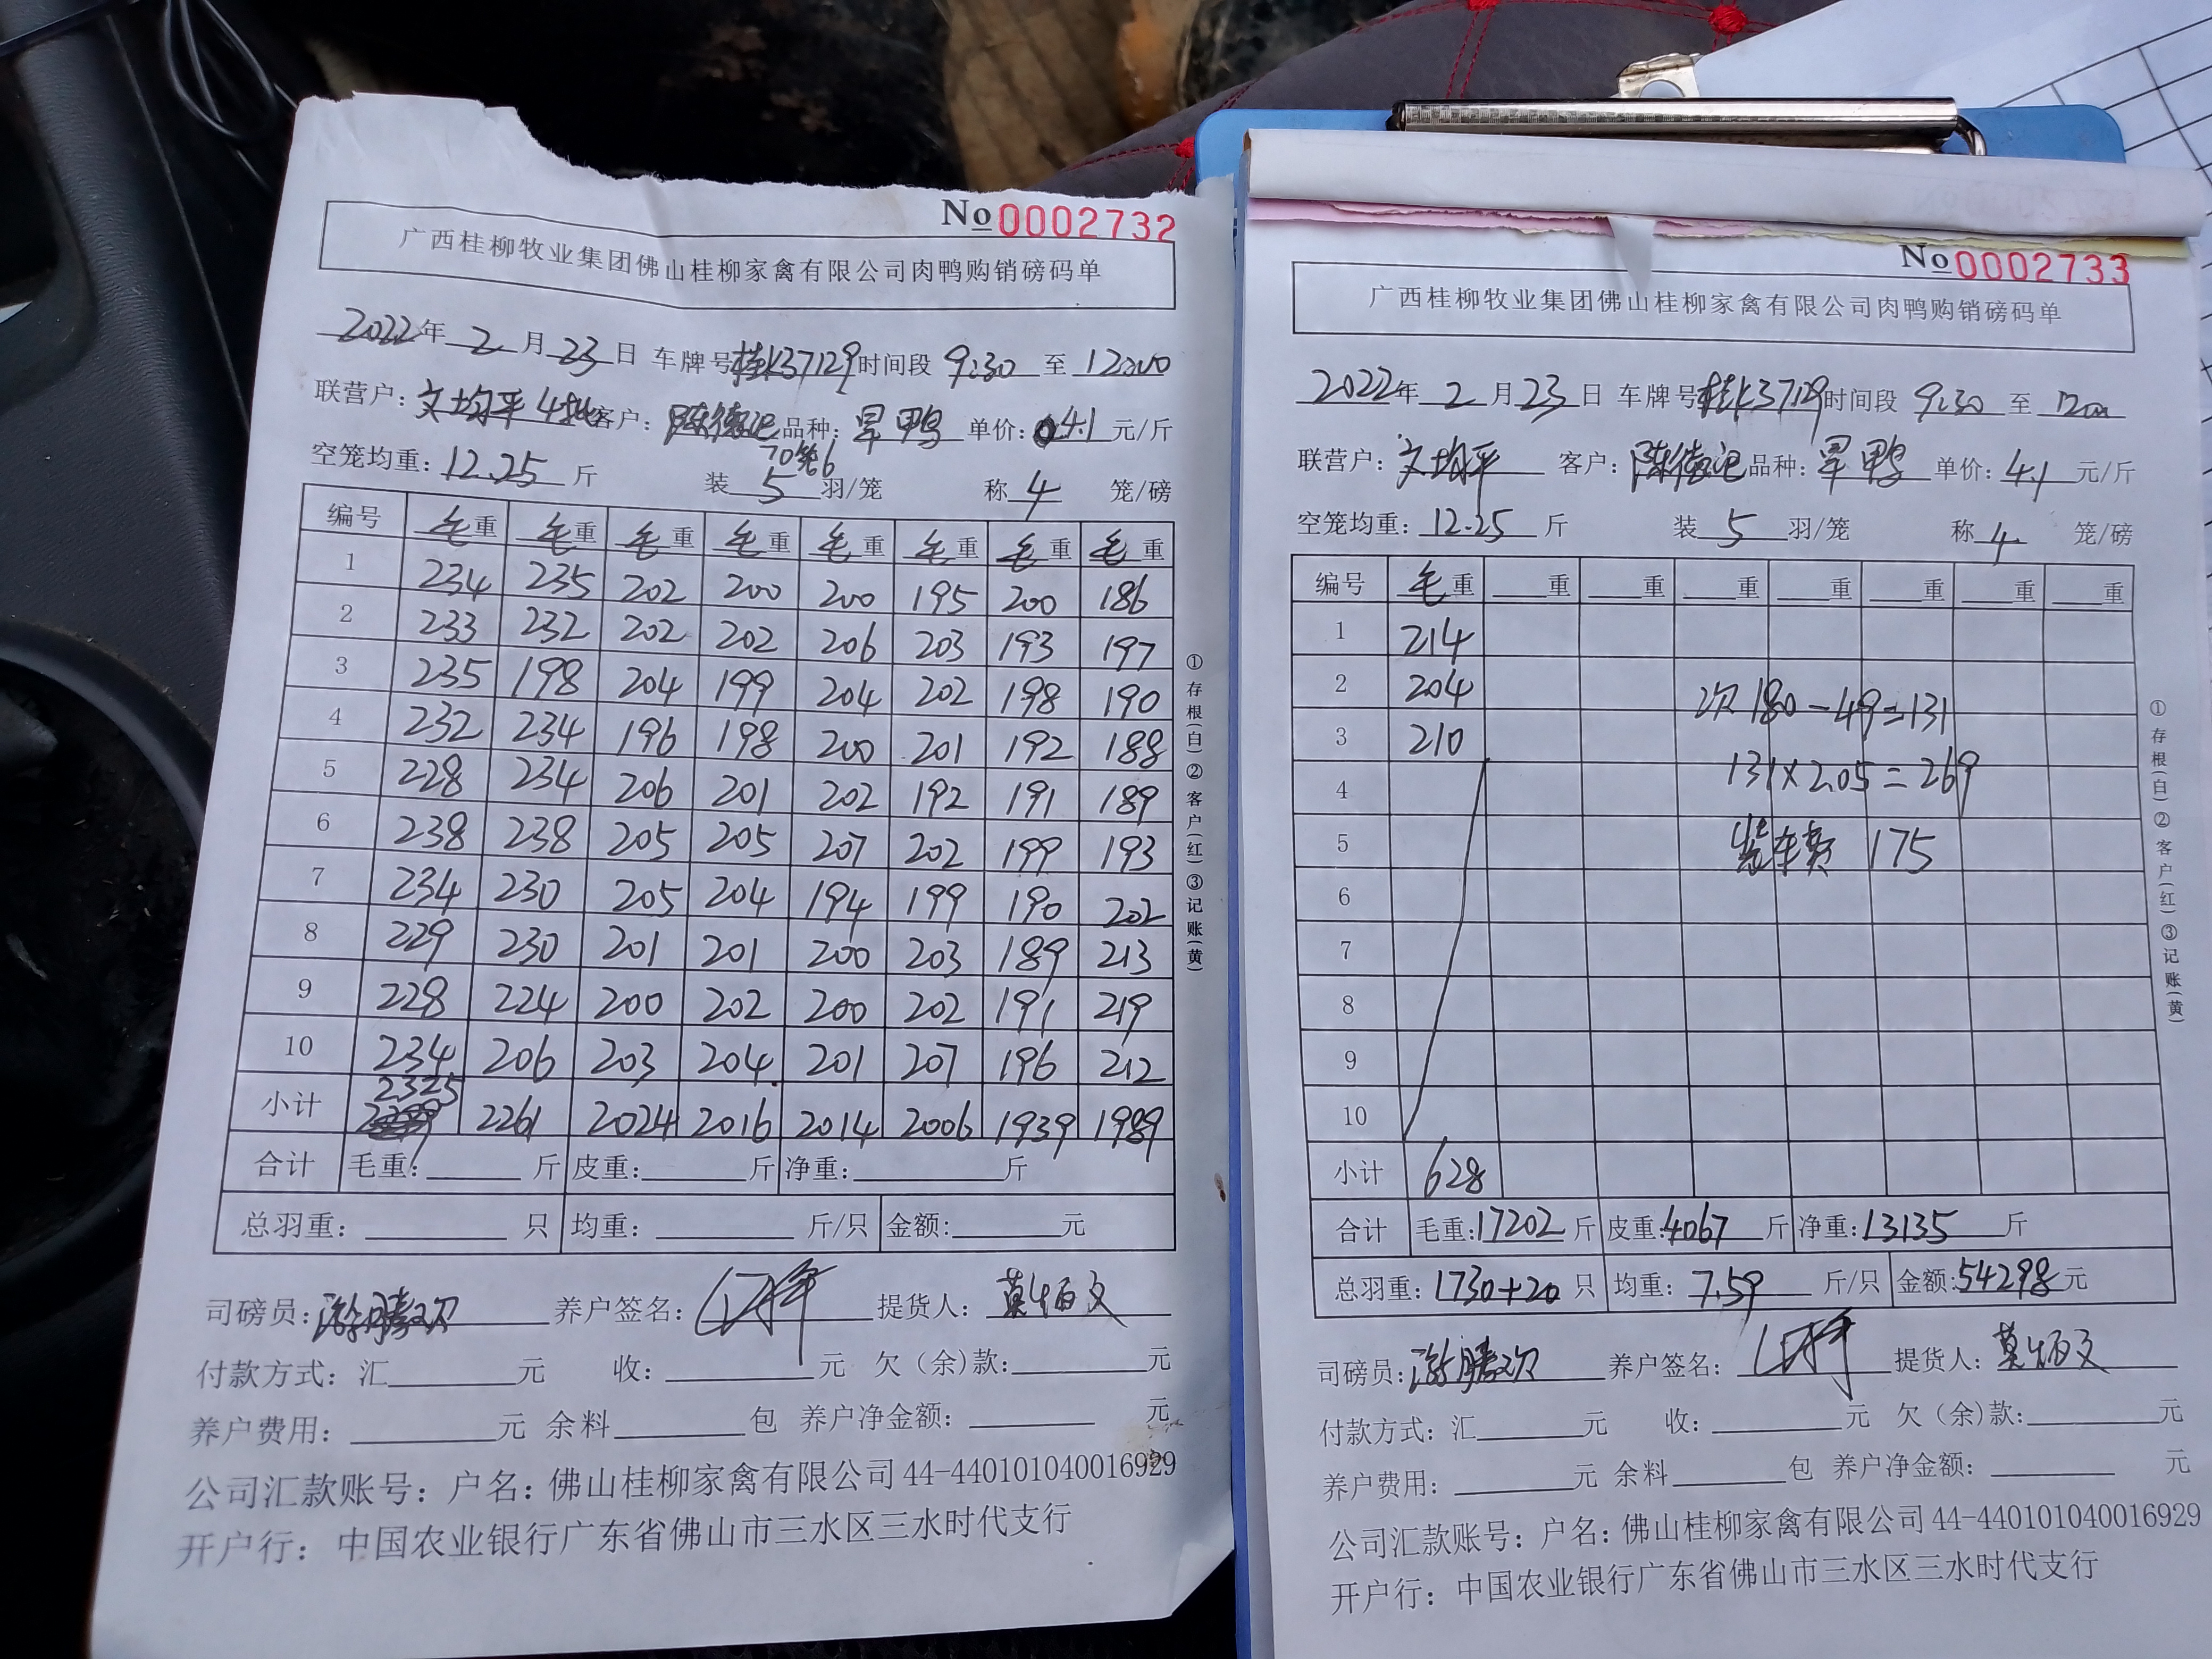 No 0002732
广西桂柳牧业集团佛山桂柳家禽有限公司肉鸭购销磅码单
2022年 2 月 23 日 车牌号桂K37129时间段 9:30 至 12:00
联营户：文均平4批 客户：陈德记 品种：旱鸭 单价：4.1 元/斤
70笼6
空笼均重：12.25 斤 装 5 羽/笼 称 4 笼/磅
编号 毛重 毛重 毛重 毛重 毛重 毛重 毛重 毛重
1 234 235 202 200 200 195 200 186
2 233 232 202 202 206 203 193 197
3 235 198 204 199 204 202 198 190
4 232 234 196 198 200 201 192 188
5 228 234 206 201 202 192 191 189
6 238 238 205 205 207 202 199 193
7 234 230 205 204 194 199 190 202
8 229 230 201 201 200 203 189 213
9 228 224 200 202 200 202 191 219
10 234 206 203 204 201 207 196 212
小计 2325 2261 2024 2016 2014 2006 1939 1989
合计 毛重：斤 皮重：斤 净重：斤
总羽重：只 均重：斤/只 金额：元
司磅员： 养户签名： 提货人：莫炳文
付款方式：汇元 收：元 欠（余)款：元
养户费用：元 余料包 养户净金额：元
公司汇款账号：户名：佛山桂柳家禽有限公司 44-440101040016929
开户行：中国农业银行广东省佛山市三水区三水时代支行
①存根(白)②客户(红)③记账(黄)
No 0002733
广西桂柳牧业集团佛山桂柳家禽有限公司肉鸭购销磅码单
2022年 2 月 23 日 车牌号桂K37129时间段 9:30 至 1200
联营户：文均平 客户：陈德记 品种：旱鸭 单价：4.1 元/斤
空笼均重：12.25 斤 装 5 羽/笼 称 4 笼/磅
编号 毛重 重 重 重 重 重 重 重
1 214
2 204 次180-49=131
3 210
4 131×2.05=269
5 装车费 175
6
7
8
9
10
小计 628
合计 毛重：17202 斤 皮重：4067 斤 净重：13135 斤
总羽重：1730+20 只 均重：7.59 斤/只 金额：54298元
司磅员： 养户签名： 提货人：莫炳文
付款方式：汇元 收：元 欠（余)款：元
养户费用：元 余料包 养户净金额：元
公司汇款账号：户名：佛山桂柳家禽有限公司 44-440101040016929
开户行：中国农业银行广东省佛山市三水区三水时代支行
①存根(白)②客户(红)③记账(黄)